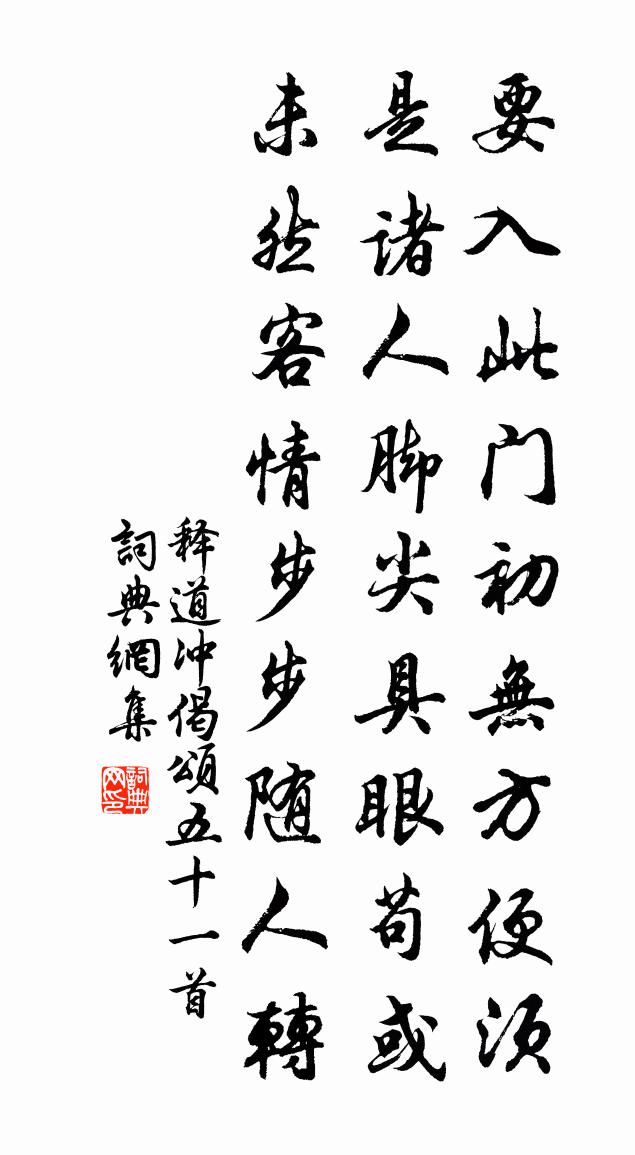 要入此门初無方便须
是诸人脚尖具眼苟或
未然客情步步随人轉
释道冲偈頌五十一首
詞典網集
詞典网印